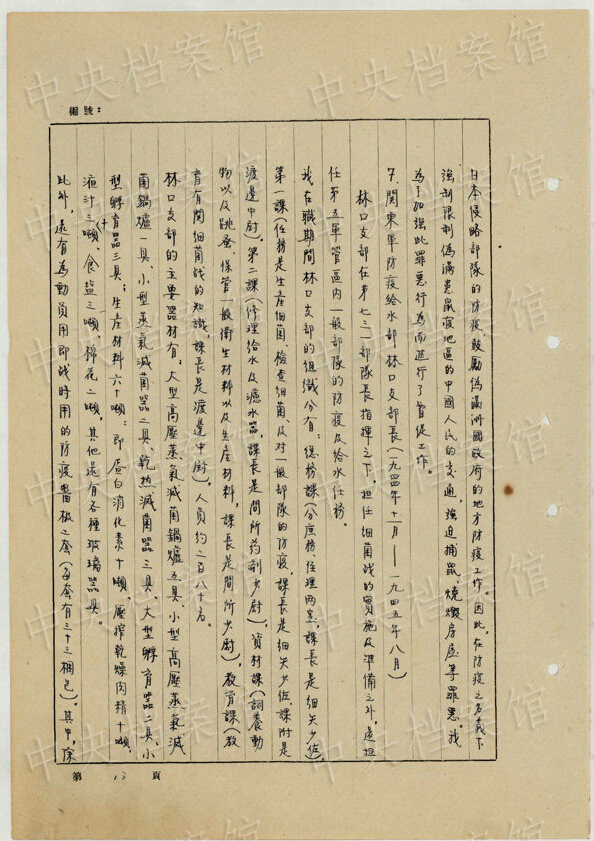 中央档案馆
編號：
日本侵略部隊的防疫、鼓勵偽滿洲國政府的地方防疫工作。因此，在防疫之名義下
強制限制偽滿患鼠疫地區的中國人民的交通，強迫捕鼠、燒燬房屋等罪惡。我
為了加強此罪惡行為而進行了督促工作。
7.關東軍防疫給水部林口支部長（一九四年十一月——一九四五年八月）
林口支部在第七三一部隊長指揮之下，担任細菌战的實施及準備之外，還担
任第五軍管區内一般部隊的防疫及給水任務。
我在職期間林口支部的組織分有：總務課（分庶務、经理两室，課長是細矢少佐）
第一課（任務是生產細菌、檢查細菌、及对一般部隊的防疫，課長是細矢少佐、課附是
渡邊中尉）、第二課（修理給水及濾水器，課長是間所药剂少尉）、資材課（飼養動
物以及跳蚤、保管一般衛生材料以及生產材料，課長是間所少尉）、教育課（教
育有関細菌战的知識，課長是渡邊中尉），人員约二百八十名。
林口支部的主要器材有，大型高壓蒸氣滅菌鍋爐五具、小型高壓蒸氣滅
菌鍋爐一具、小型蒸氣滅菌器二具、乾热滅菌器三具、大型孵育器二具、小
型孵育器三具；生產材料六十噸：即蛋白消化素十噸、壓搾乾燥肉精十噸、
液汁三十噸、食盐三噸、棉花二噸，其他还有各種玻璃器具。
此外，还有為動員用即战時用的防疫醫极二套（每套有三十三梱包）。其中，除
第 13 頁